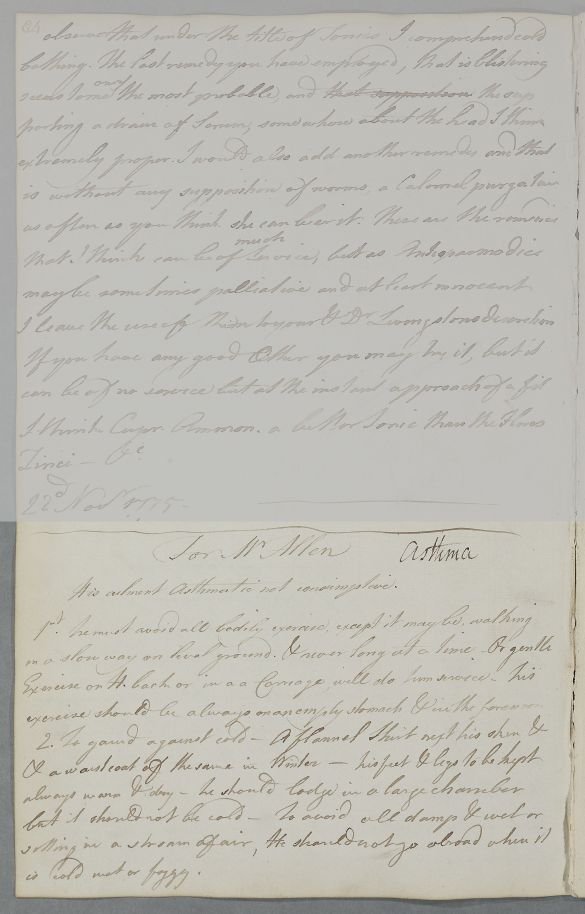 64
observe that under the title of Tonics I comprehend cold
bathing. The last remedy you have employed, that is blistering
seems to me one the most probable, and that supposition the sup
porting a drain of Serum, somewhere about the head I think
extremely proper. I would also add another remedy and that
is without any supposition of worms, a Calomel purgative
as often as you think she can bear it. These are the remedies
that I think can be of much service, but as Antispasmodics
may be sometimes palliative and at least innocent
I leave the use of them to your & Dr Livingstons discretion
If you have any good Ether you may try it, but it
can be of no service but at the instant approach of a fit
I think Cupr. Ammon. a better Tonic than the Flores
Zinci — &c
22d Novr 1775-
For Mr Allen Asthma
His ailment Asthmatic not consumptive.
1st. he must avoid all bodily exercise, except it may be walking
in a slow way on level ground. & never long at a time Or gentle
Exercise on H. back or in a a Carriage, will do him service - his
exercise should be always on an empty stomach & in the forenoon
2. To gaurd against cold - A flannel Shirt next his skin &
& a waistcoat of the same in Winter - his feet & legs to be kept
always warm & dry - he should lodge in a large chamber
but it should not be cold - To avoid all damps & wet or
sitting in a stream of air, He should not go abroad when it
is cold wet or foggy.